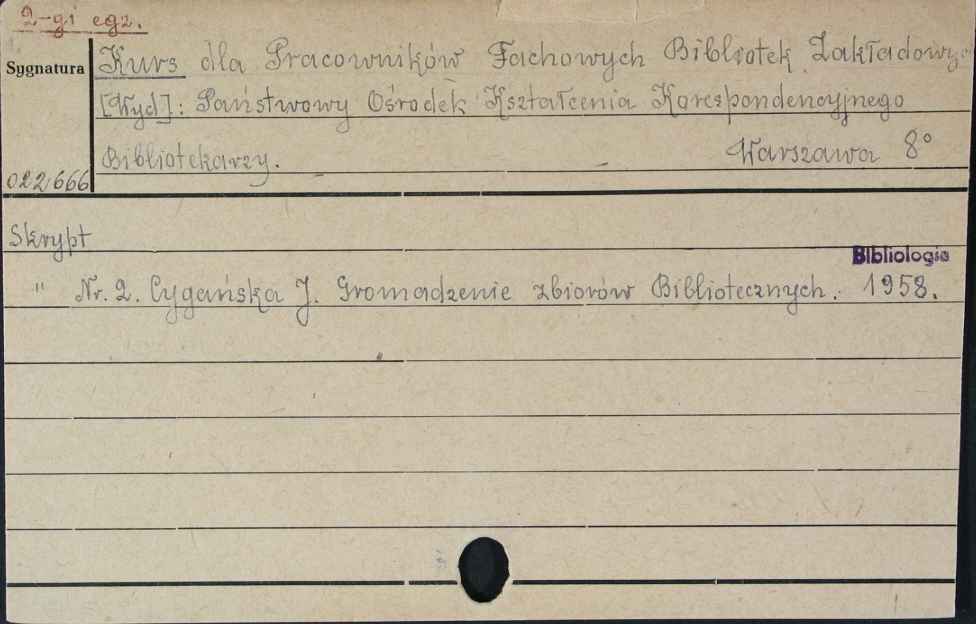 2-gi egz.
Sygnatura
Kurs dla Pracowników Fachowych Bibliotek Zakładowyc
[Wyd]: Państwowy Ośrodek Kształcenia Korespondencyjnego
Bibliotekarzy. – Warszawa 8°
022666
Skrypt
Bibliologia
" Nr. 2. Cygańska J. Gromadzenie zbiorów Bibliotecznych. 1958.